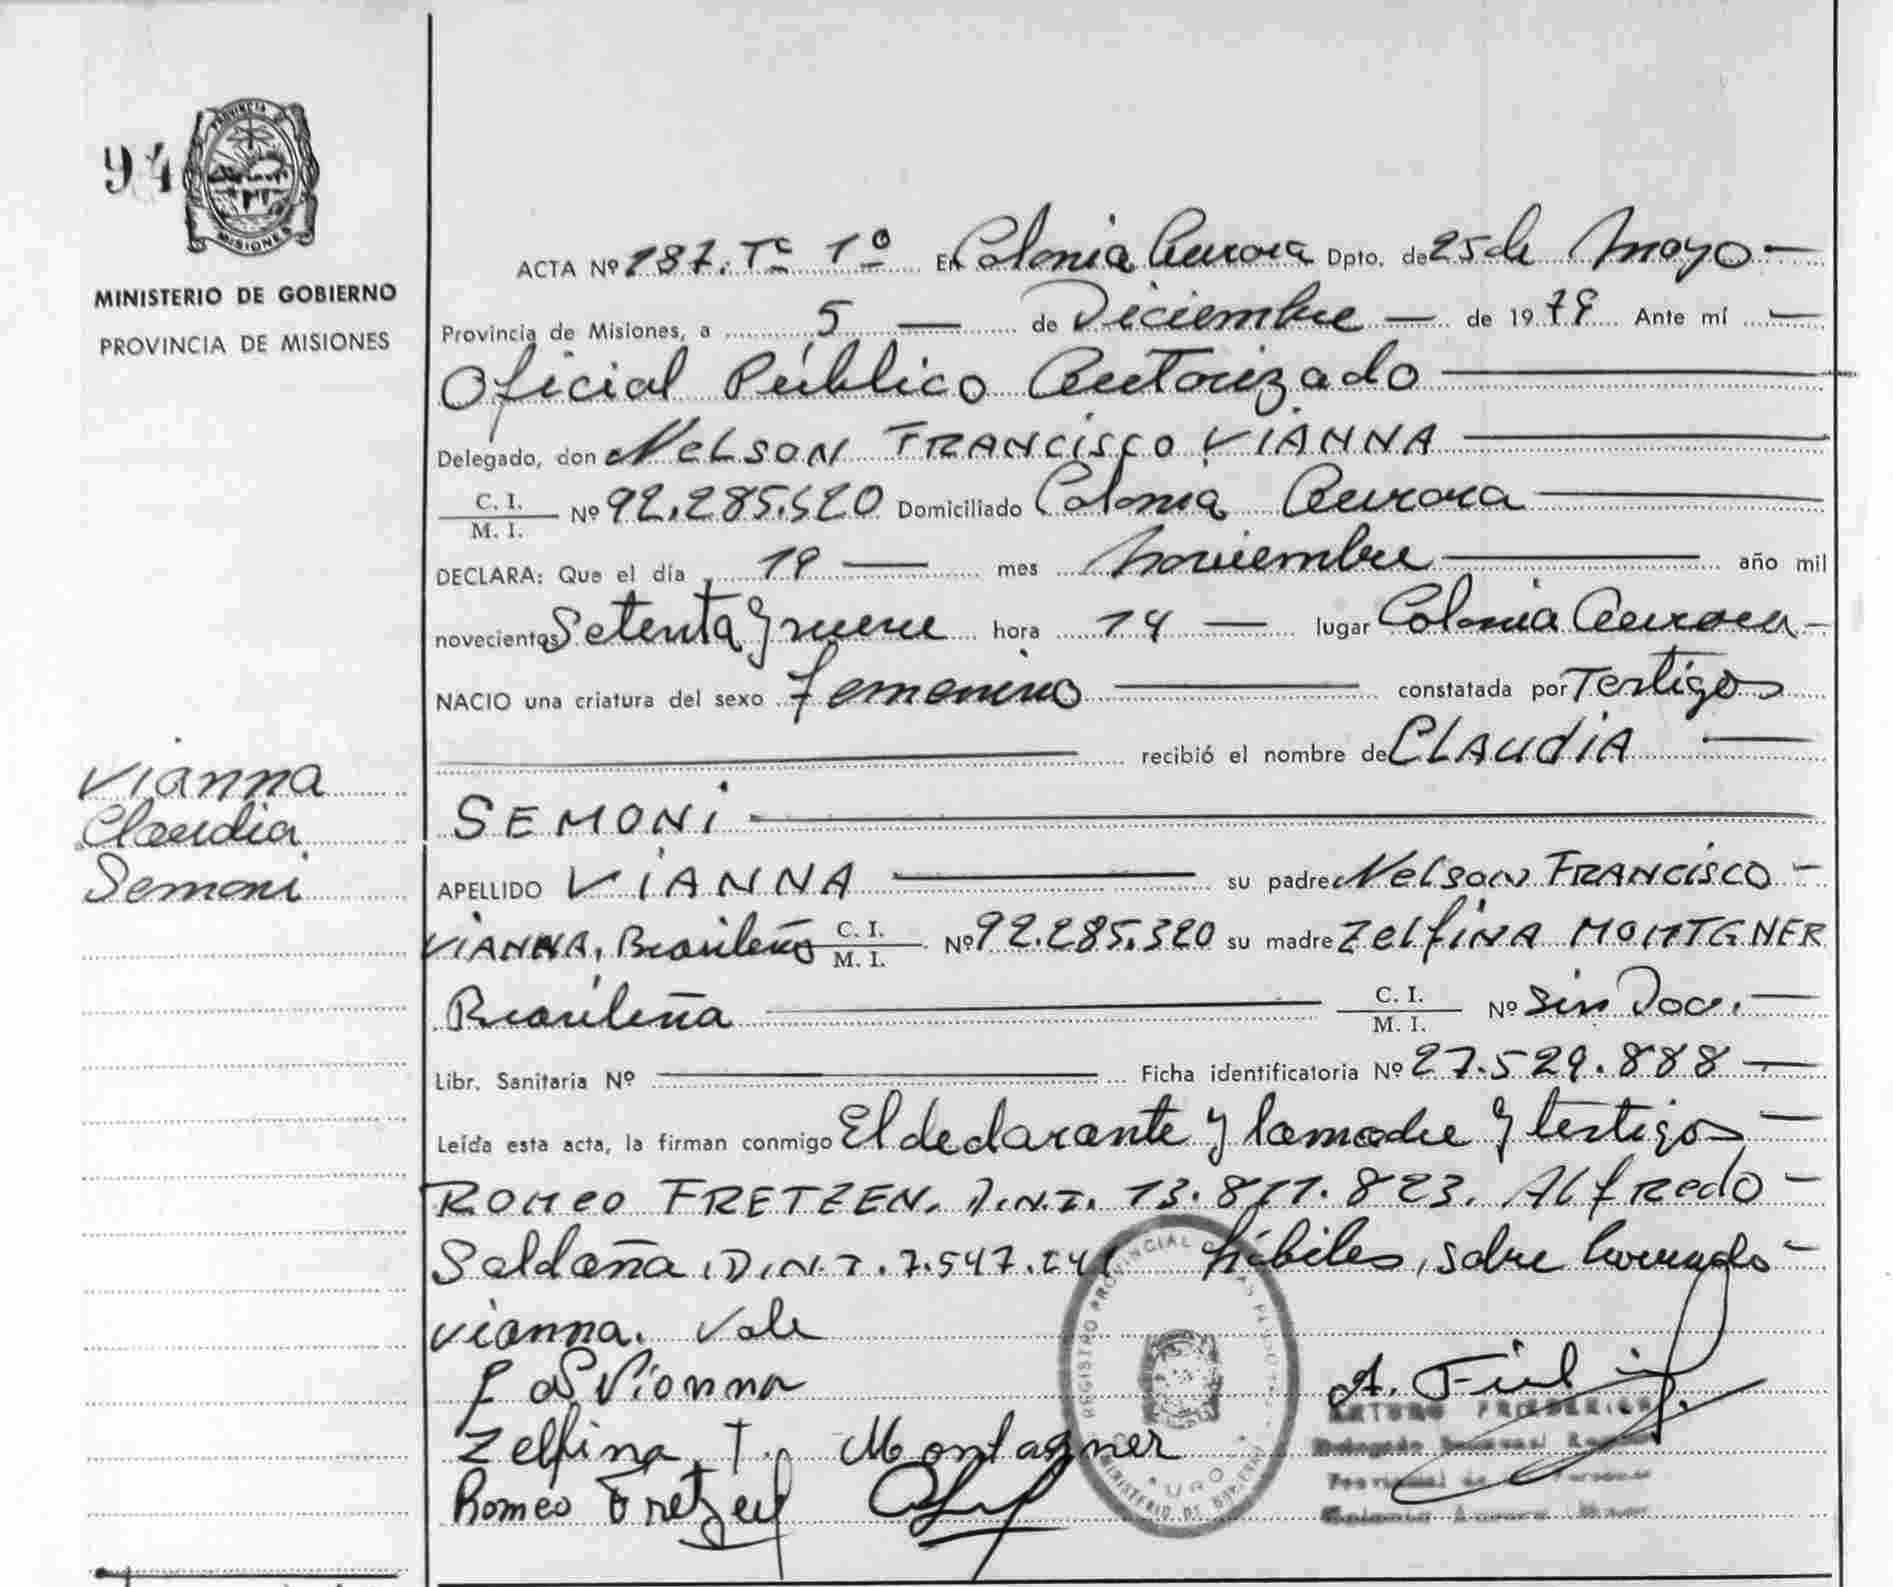 94
PROVINCIA DE
MISIONES
MINISTERIO DE GOBIERNO
PROVINCIA DE MISIONES
ACTA Nº 187. Tº 1º En Colonia Aurora Dpto. de 25 de Mayo —
Provincia de Misiones, a 5 — de Diciembre — de 1979 Ante mí —
Oficial Público Autorizado —
Delegado, don Nelson FRANCISCO VIANNA —
C. I. / M. I. Nº 92.285.520 Domiciliado Colonia Aurora —
DECLARA: Que el día 19 — mes Noviembre — año mil
novecientos Setenta y nueve hora 14 — lugar Colonia Aurora —
NACIO una criatura del sexo femenino — constatada por Testigos
— recibió el nombre de CLAUDIA —
SEMONI —
Vianna
Claudia
Semoni
APELLIDO VIANNA — su padre Nelson FRANCISCO —
VIANNA, Brasileño C. I. / M. I. Nº 92.285.320 su madre Zelfina MONTGNER
Brasileña — C. I. / M. I. Nº Sin Doc. —
Libr. Sanitaria Nº — Ficha identificatoria Nº 27.529.888 —
Leída esta acta, la firman conmigo El declarante y la madre y testigos —
ROMEO FRETZEN. D.N.I. 13.811.823. Alfredo —
Saldaña, D.N.I. 7.547.241 hábiles, sobre borrado —
Vianna. Vale
Vianna
Zelfina T. Montagner
Romeo Fretzen
A.
REGISTRO PROVINCIAL DE LAS PERSONAS
MINISTERIO DE GOBIERNO
ARTURO
Delegado
Provincial de Personas
Colonia Aurora